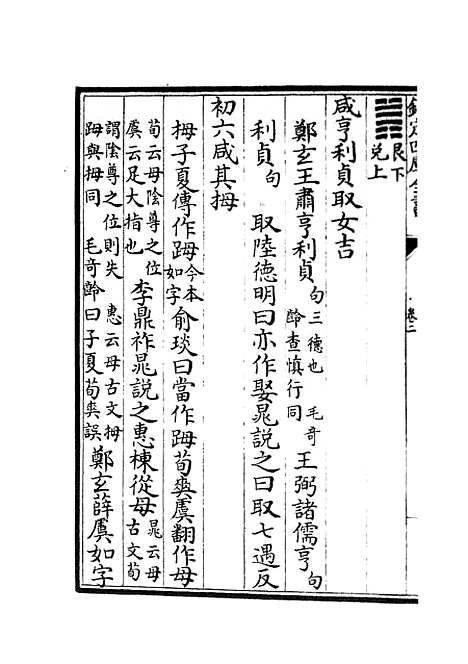 欽定四庫全書
卷二
䷞艮下兌上
咸亨利貞取女吉
鄭玄王肅亨利貞句三德也 毛奇齡查慎行同王弼諸儒亨句
利貞句 取陸德明曰亦作娶晁説之曰取七遇反
初六咸其拇
拇子夏傳作𧿹今本如字俞琰曰當作𧿹荀爽虞翻作母
荀云母陰尊之位虞云足大指也李鼎祚晁説之惠棟從母晁云母古文荀
謂陰尊之位則失 惠云母古文拇𧿹與拇同 毛奇齡曰子夏荀爽誤鄭玄薛虞如字